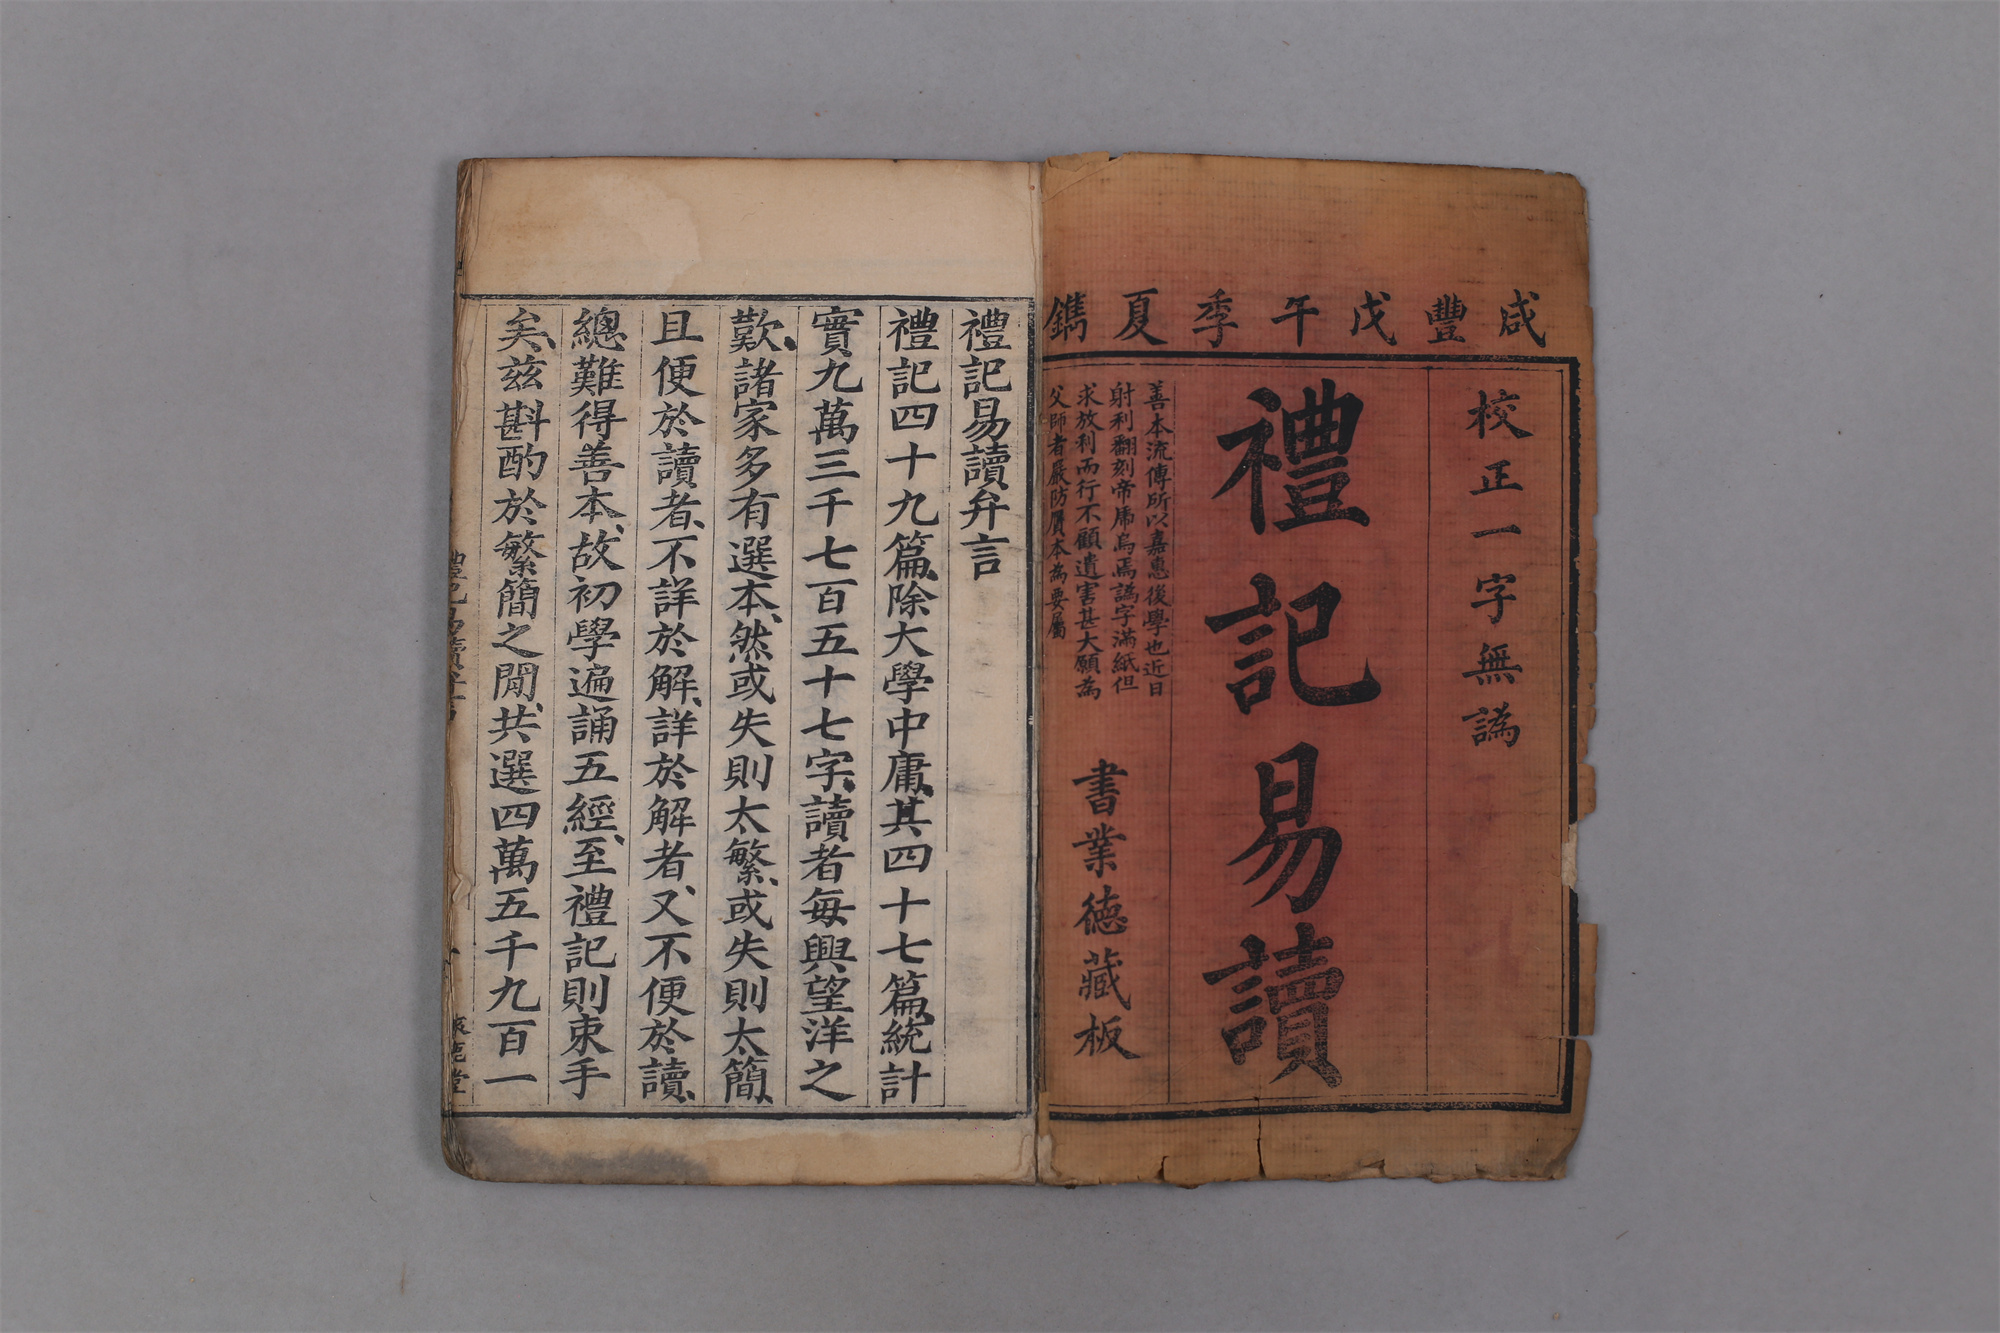 咸豐戊午季夏鐫
校正一字無譌
禮記易讀
善本流傳所以嘉惠後學也近日
射利翻刻帝虎烏焉譌字滿紙但
求放利而行不顧遺害甚大願為
父師者嚴防贋本為要屬
書業德藏板
禮記易讀弁言
禮記四十九篇、除大學中庸、其四十七篇、統計
實九萬三千七百五十七字、讀者每興望洋之
歎、諸家多有選本、然或失則太繁、或失則太簡、
且便於讀者、不詳於解、詳於解者、又不便於讀、
總難得善本、故初學遍誦五經、至禮記則束手
矣、茲斟酌於繁簡之閒、共選四萬五千九百一